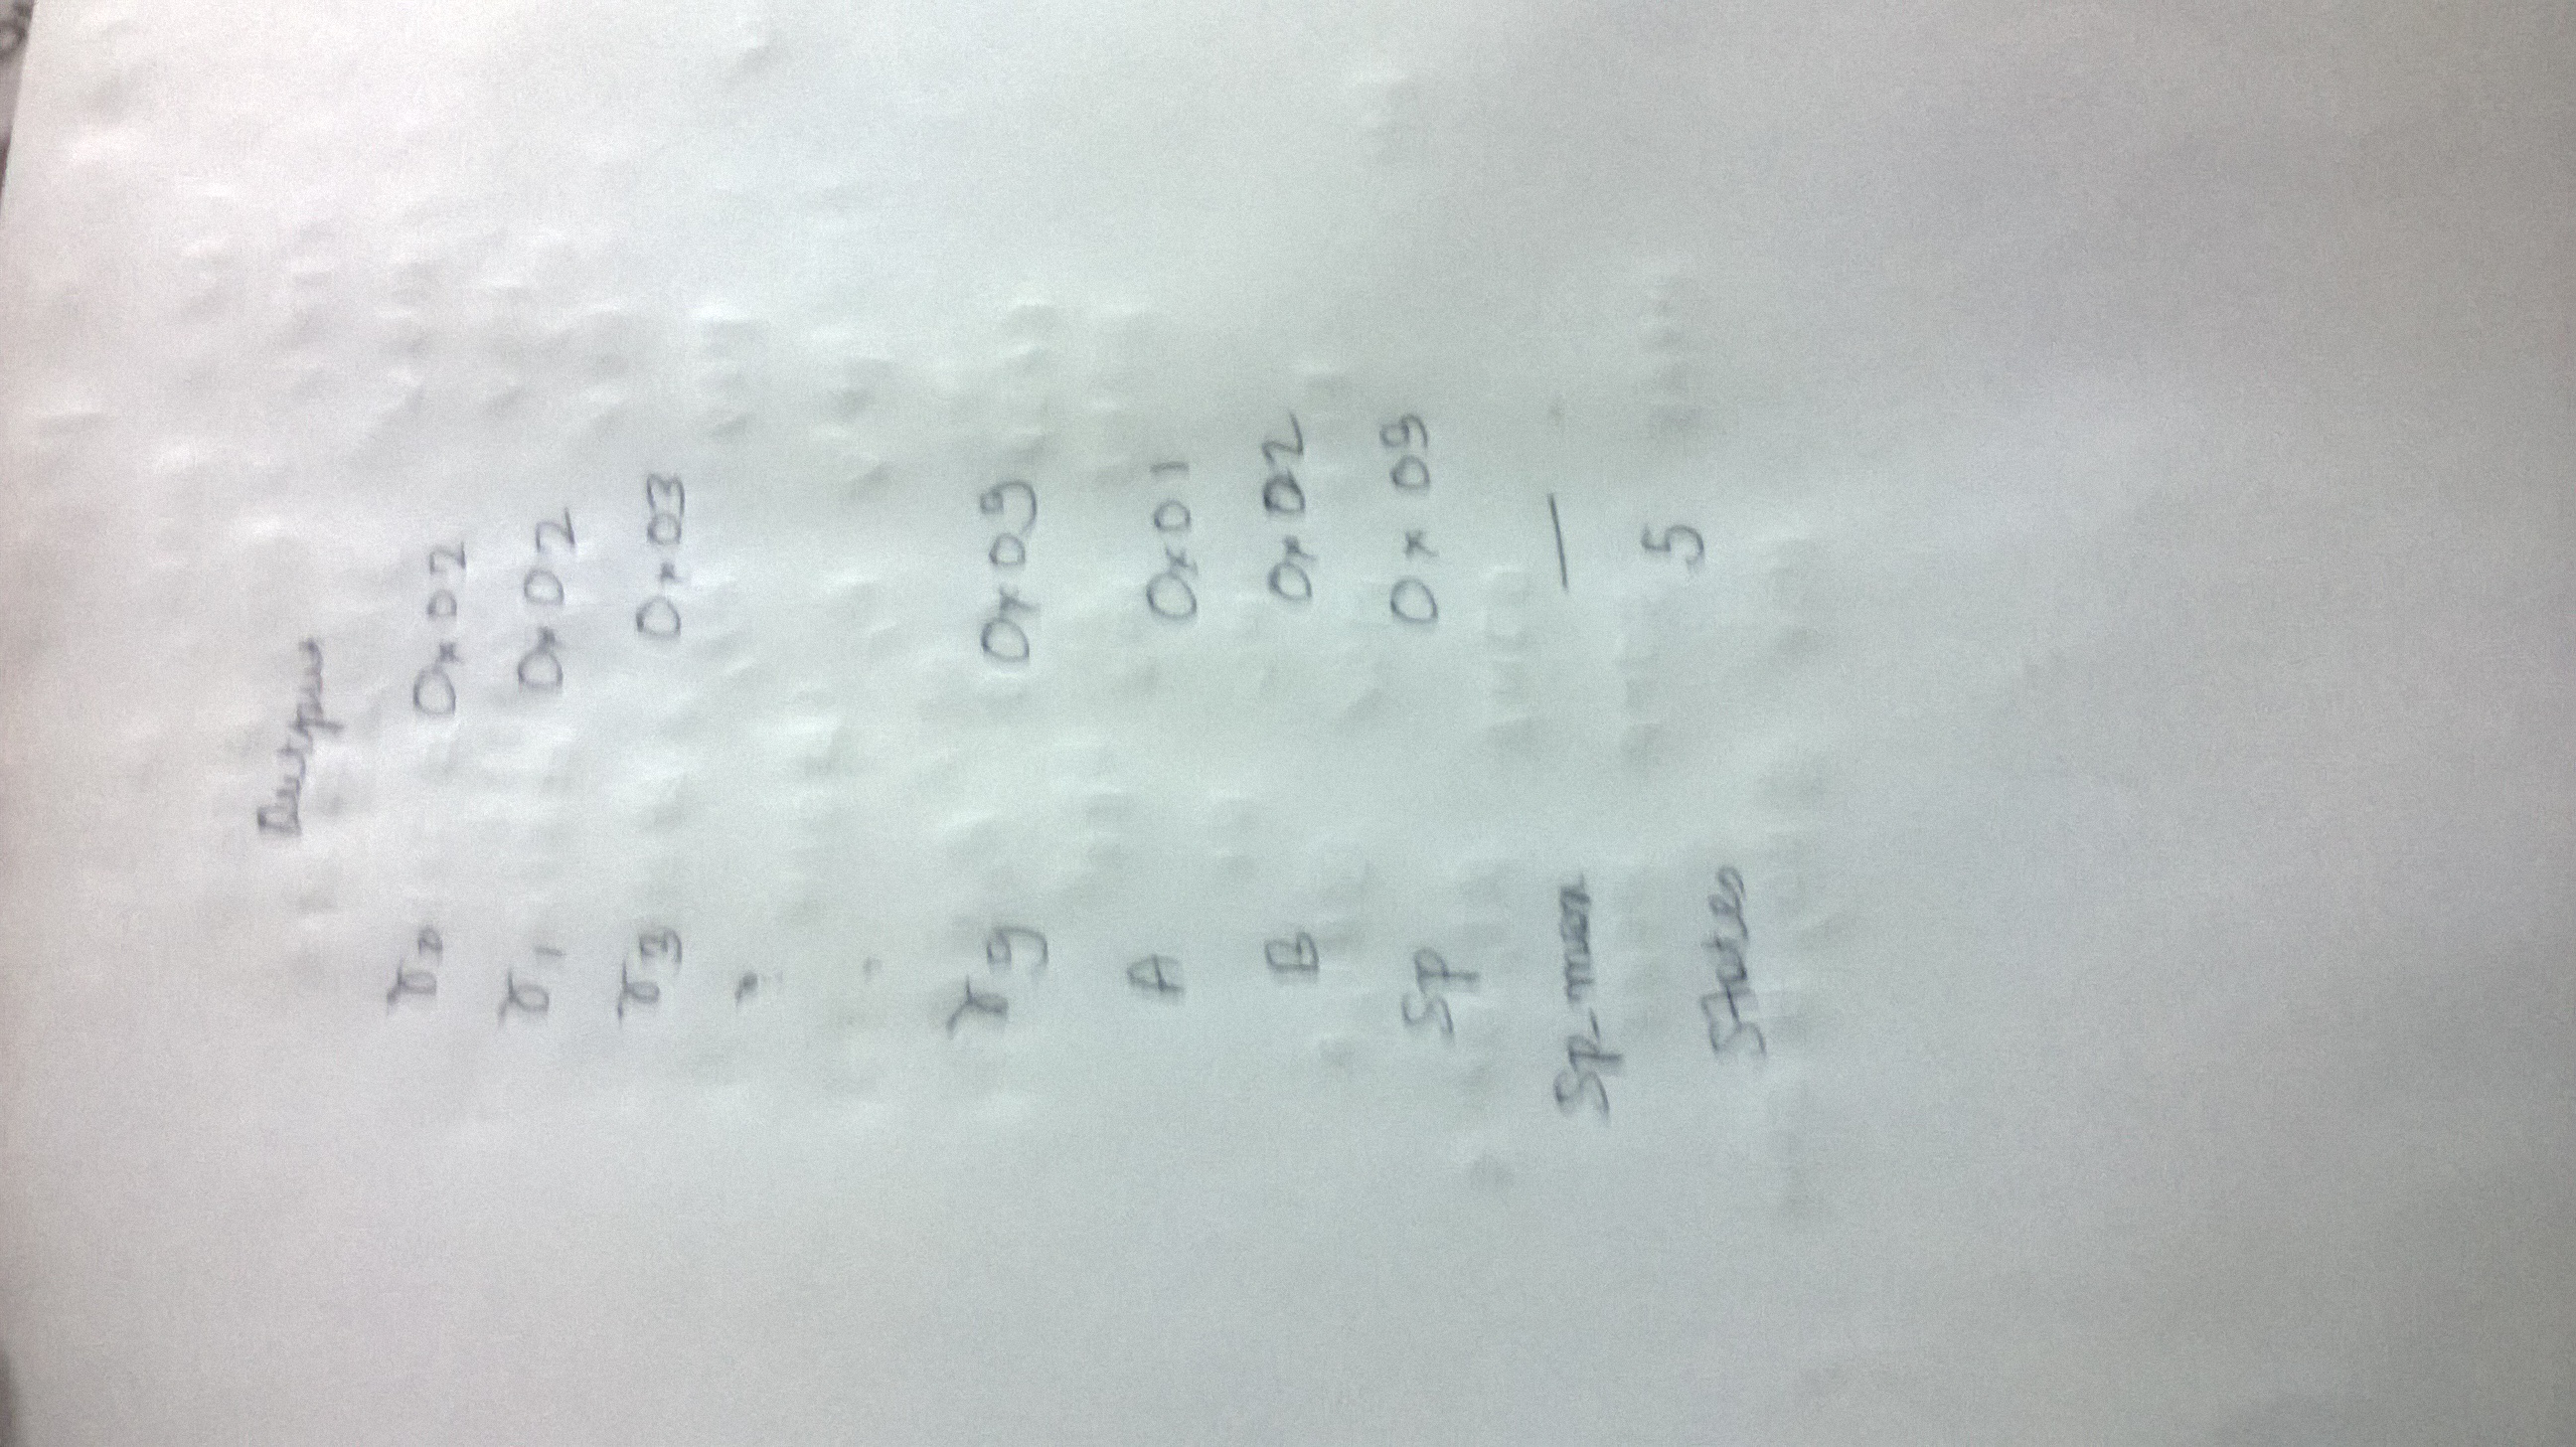 r0 0x02
r1 0x02
r3 0x03
.
.
r9 0x09
A 0x01
B 0x02
SP 0x09
Sp-max —
States 5